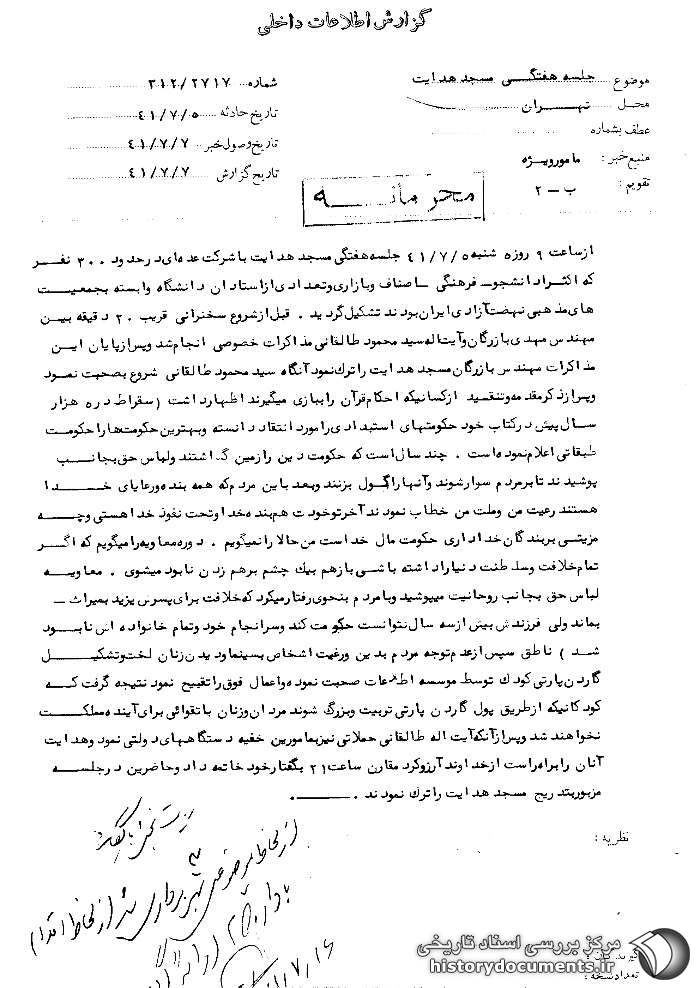 گزارش اطلاعات داخلی
موضوع جلسه هفتگی مسجد هدایت
شماره ۳۱۲/۲۷۱۷
محل تهران
تاریخ حادثه ۴۱/۷/۵
عطف بشماره
تاریخ وصول خبر ۴۱/۷/۷
منبع خبر : مامور ویژه
تاریخ گزارش ۴۱/۷/۷
تقویم : ب – ۲
محرمانه
از ساعت ۹ روزه شنبه ۴۱/۷/۵ جلسه هفتگی مسجد هدایت با شرکت عده ای در حدود ۳۰۰ نفر
که اکثرا دانشجو – فرهنگی – اصناف و بازاری و تعدادی از استادان دانشگاه وابسته بجمعیت
های مذهبی نهضت آزادی ایران بودند تشکیل گردید . قبل از شروع سخنرانی قریب ۲۰ دقیقه بین
مهندس مهدی بازرگان و آیت اله سید محمود طالقانی مذاکرات خصوصی انجام شد و پس از پایان این
مذاکرات مهندس بازرگان مسجد هدایت را ترک نمود آنگاه سید محمود طالقانی شروع بصحبت نمود
و پس از ذکر مقدمه و تنقید از کسانیکه احکام قرآن را ببازی میگیرند اظهار داشت ( سقراط در ه هزار
سال پیش در کتاب خود حکومتهای استبدادی را مورد انتقاد دانسته و بهترین حکومت ها را حکومت
طبقاتی اعلام نموده است . چند سال است که حکومت دین را زمین گذاشتند و لباس حق بجانب
پوشیدند تا بر مردم سوار شوند و آنها را گول بزنند و بعد باین مردم که همه بنده و رعایای خدا
هستند رعیت من و ملت من خطاب نمودند آخر تو خودت هم بنده خدا و تحت نفوذ خدا هستی و چه
مزیتی بر بندگان خدا داری حکومت مال خدا است من حالا را نمیگویم . دوره معاویه را میگویم که اگر
تمام خلافت و سلطنت دنیا را داشته باشی باز هم بیک چشم برهم زدن نابود میشوی . معاویه
لباس حق بجانب روحانیت میپوشید و با مردم بنحوی رفتار میکرد که خلافت برای پسرش یزید بمیراث –
بماند ولی فرزندش بیش از سه سال نتوانست حکومت کند و سرانجام خود و تمام خانواده اش نابود
شد ) ناطق سپس از عدم توجه مردم بدین و رغبت اشخاص بسینما و دیدن زنان لخت و تشکیل
گاردن پارتی کودک توسط موسسه اطلاعات صحبت نموده و اعمال فوق را تقبیح نمود نتیجه گرفت که
کودکانیکه از طریق پول گاردن پارتی تربیت و بزرگ شوند مردان و زنان با تقوائی برای آینده مملکت
نخواهند شد و پس از آنکه آیت اله طالقانی حملاتی نیز بمامورین خفیه دستگاههای دولتی نمود و هدایت
آنان را براه راست از خداوند آرزو کرد مقارن ساعت ۲۱ بگفتار خود خاتمه داد و حاضرین در جلسه
مزبور بتدریج مسجد هدایت را ترک نمودند .
نظریه :
از لحاظ موضوعی بهره برداری شد از لحاظ اقدام
تعداد نسخه :
مرکز بررسی اسناد تاریخی
historydocuments.ir